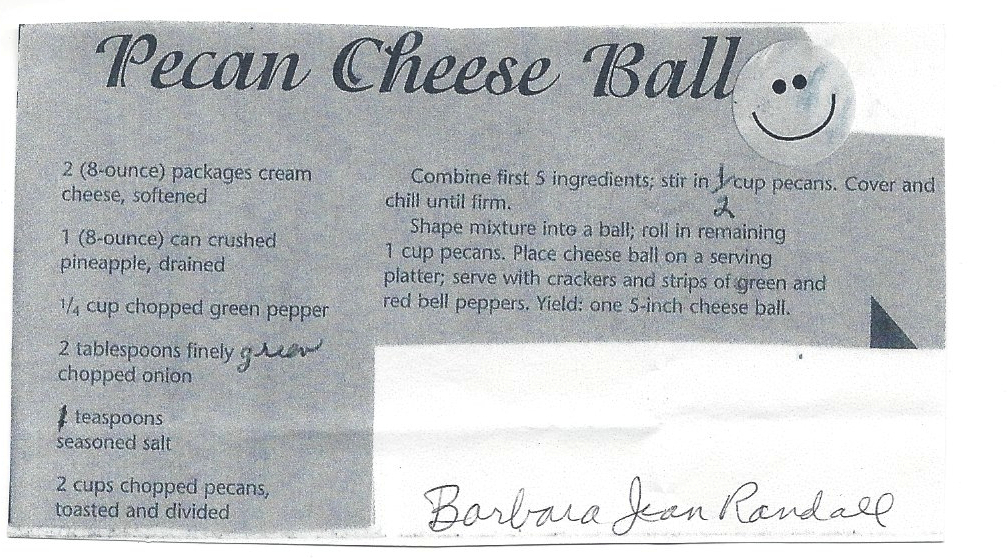 Pecan Cheese Ball
2 (8-ounce) packages cream
cheese, softened
1 (8-ounce) can crushed
pineapple, drained
1/4 cup chopped green pepper
2 tablespoons finely green
chopped onion
1 teaspoons
seasoned salt
2 cups chopped pecans,
toasted and divided
Combine first 5 ingredients; stir in 1/2 cup pecans. Cover and
chill until firm.
Shape mixture into a ball; roll in remaining
1 cup pecans. Place cheese ball on a serving
platter; serve with crackers and strips of green and
red bell peppers. Yield: one 5-inch cheese ball.
Barbara Jean Randall